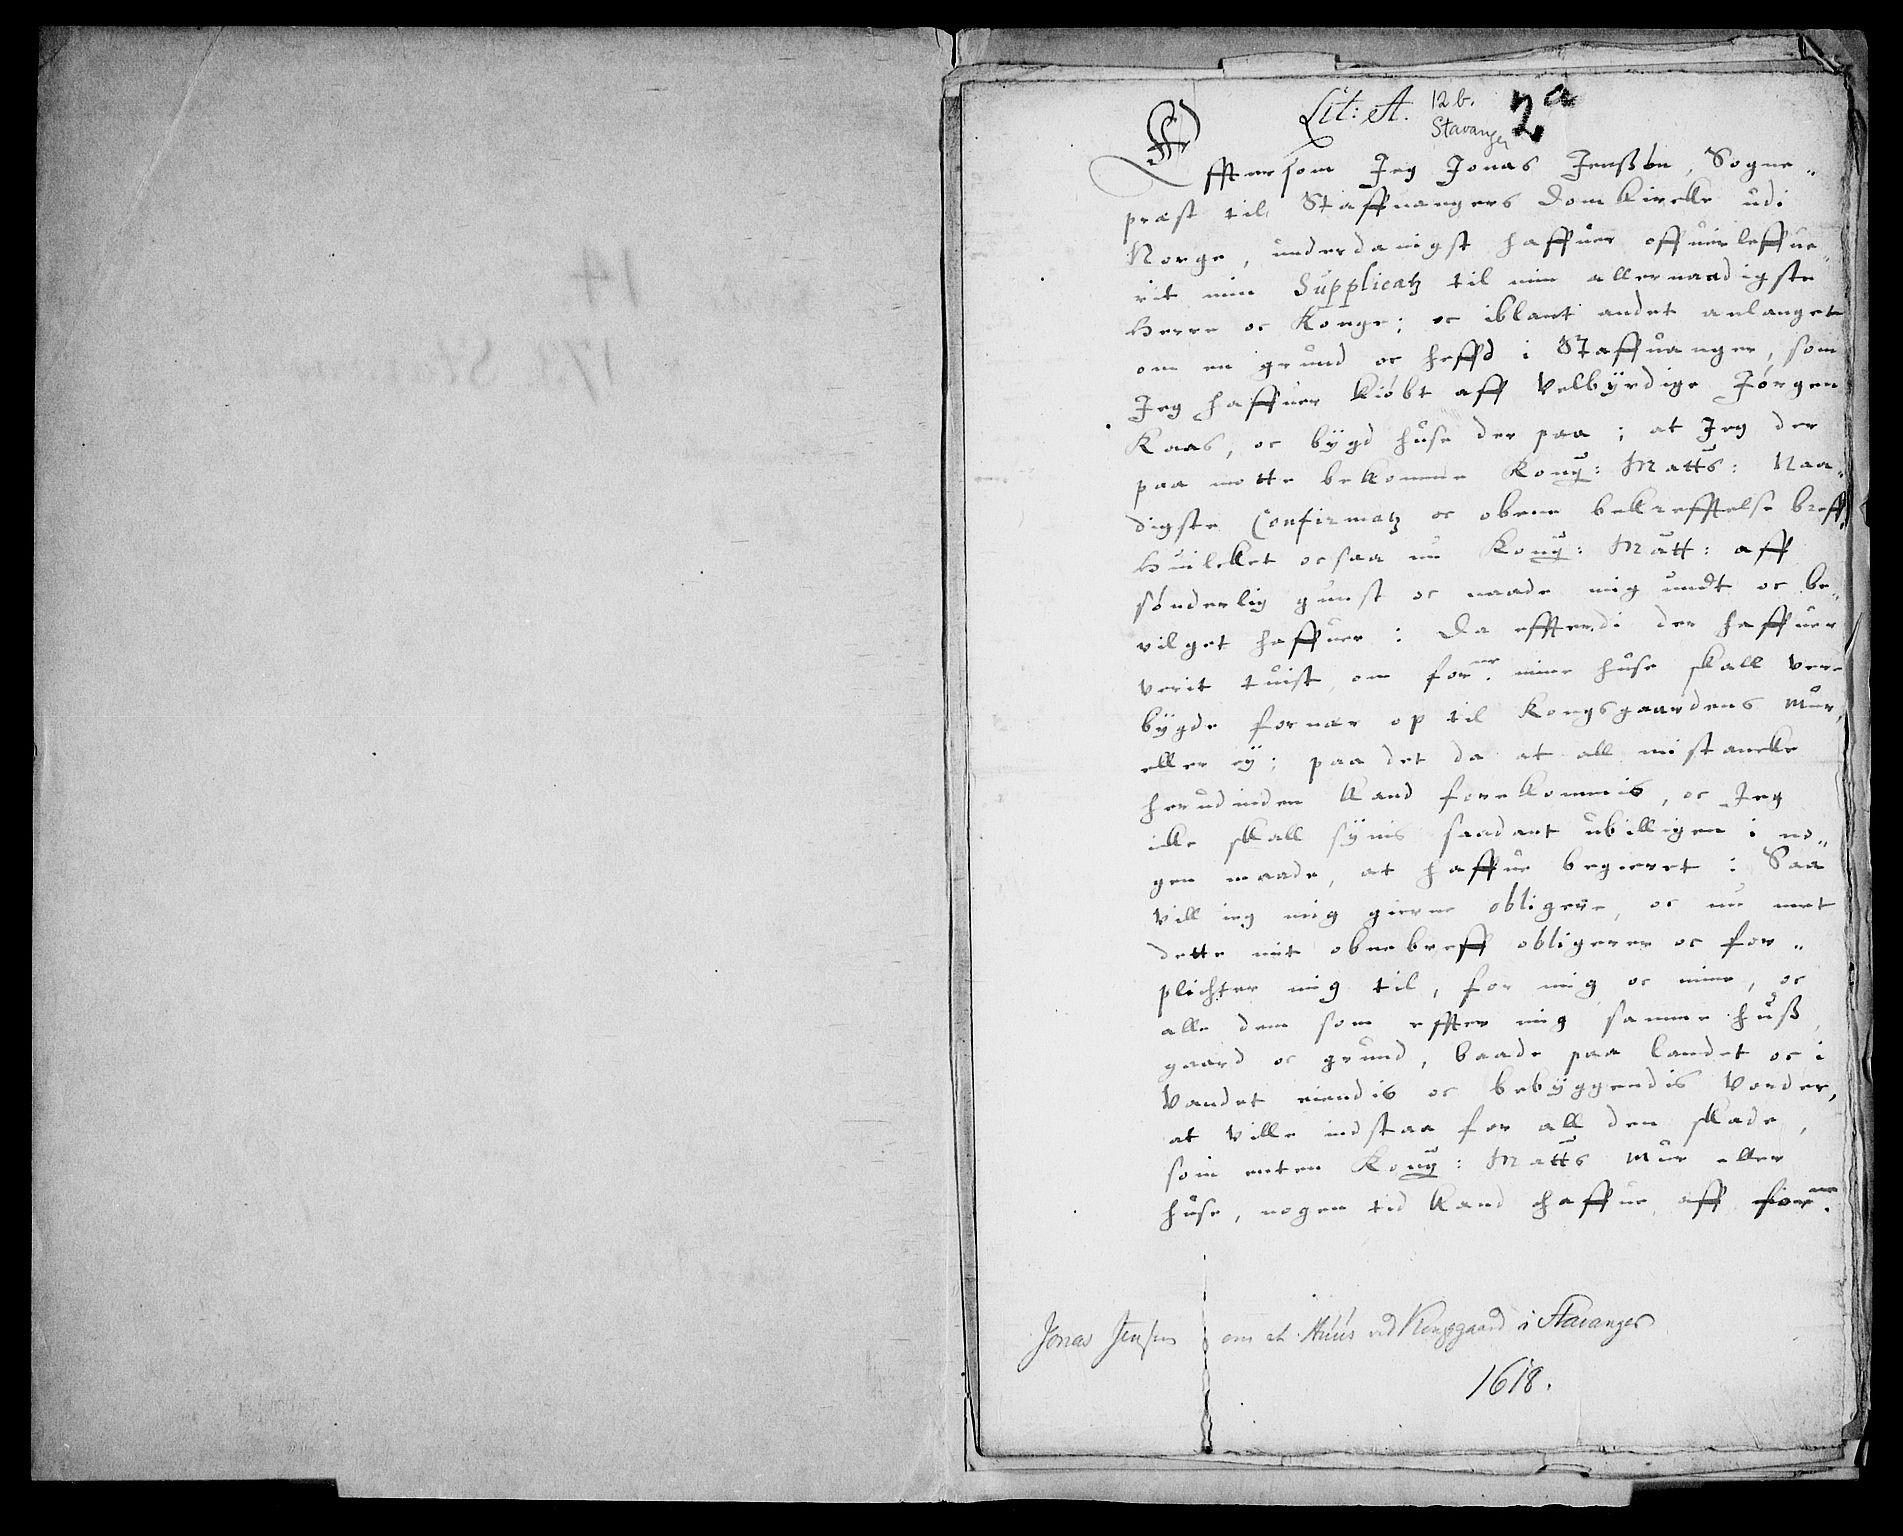 Lit: A. 12 b. 2a
Stavanger
Efftersom Jeg Jonas Jenßøn, Sogne„
præst til Staffuangers Domkircke udi
Norge, underdanigst haffuer offuerleffue„
rit min Supplicatz til min allernaadigste
Herre oc Konge; oc iblant andet anlanget
om en grund oc heffd i Staffuanger, som
Jeg haffuer kiøbt aff Velbÿrdige Jørgen
Kaas, oc bÿgd huse der paa; at Jeg der
paa motte bekomme Kong: Matts: Naa„
digste Confirmatz oc obene bekrefftelse breff
Huilcket ocsaa nu Kong: Matt: aff
sønderlig gunst oc naade mig undt oc be„
vilget haffuer: Da effterdi der haffuer
verit tuist, om forne. mine huse skall vere
bÿgde for nær op til Kongsgaardens Mur,
eller eÿ; paa det da at all mistancke
herudinden kand forekommis, oc Jeg
icke skall sÿnis saadant ubilligen i no„
gen maade, at haffue begieret: Saa
vill ieg mig gierne obligere, oc nu met
dette mit obne breff obligerer oc for„
plichter mig til, for mig oc mine, oc
alle dem som effter mig samme huß,
gaard oc grund, baade paa landet oc i
Vandet eiendis oc bebÿggendis vorder,
at ville indstaa for all den skade,
som enten Kong: Matts Mur eller
huse, nogen tid kand haffue aff forne.
Jonas Jensen om et Huus ved Kongsgaard i Stavanger
1618.